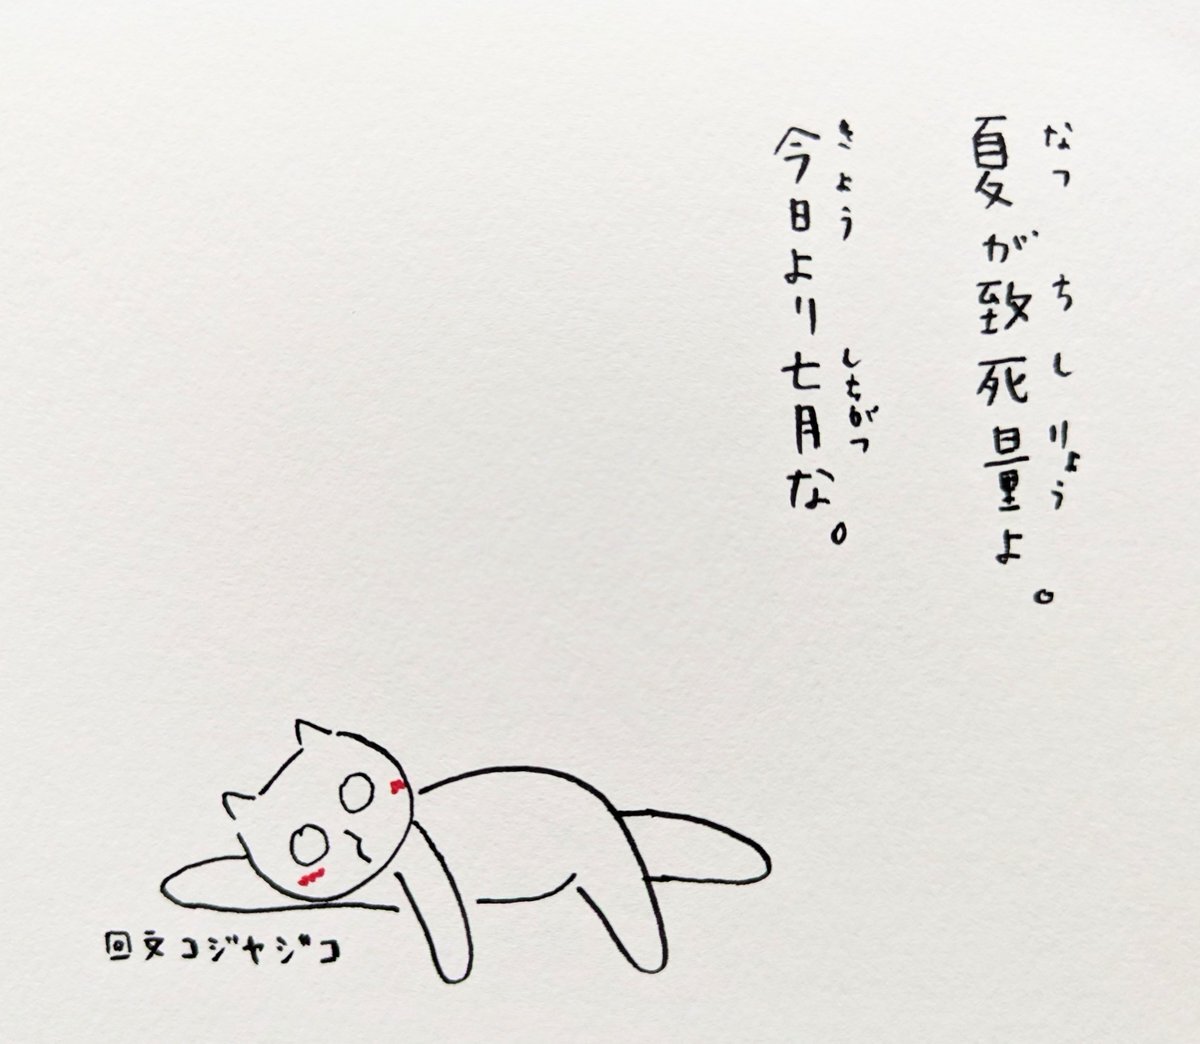 なつ ちしりょう
夏が致死量よ。
きょう しちがつ
今日より七月な。
回文コジヤジコ